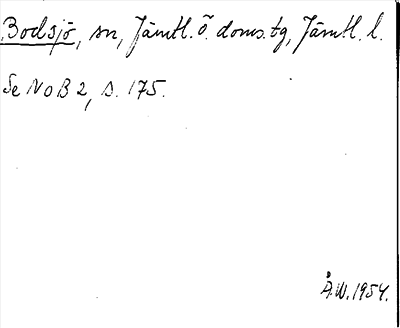 Bodsjö, sn, Jämtl. ö. doms. tg, Jämtl. l.
Se NoB 2, s. 175.
Å.W. 1954.